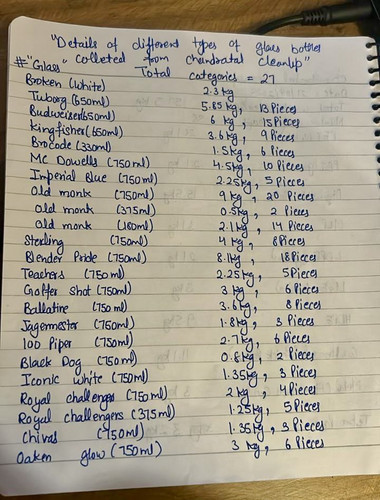 "Details of different types of glass bottles
collected from chandratal cleanup"
# "Glass" Total categories = 27
Broken (white) 2.3 kg
Tuborg (650ml) 5.85 kg, 13 Pieces
Budweizer(650ml) 6 kg, 15 Pieces
kingfisher (650ml) 3.6 kg, 9 Pieces
Brocode (330ml) 1.5 kg, 6 Pieces
Mc Dowells (750ml) 4.5 kg, 10 Pieces
Imperial Blue (750ml) 2.25 kg, 5 Pieces
Old monk (750ml) 9 kg, 20 Pieces
Old monk (375ml) 0.5 kg, 2 Pieces
Old monk (180ml) 2.1 kg, 14 Pieces
Sterling (750ml) 4 kg, 8 Pieces
Blender Pride (750ml) 8.1 kg, 18 Pieces
Teachers (750ml) 2.25 kg, 5 Pieces
Golfer Shot (750ml) 3 kg, 6 Pieces
Ballatine (750ml) 3.6 kg, 8 Pieces
Jagermester (750ml) 1.8 kg, 3 Pieces
100 Piper (750ml) 2.7 kg, 6 Pieces
Black Dog (750ml) 0.8 kg, 2 Pieces
Iconic white (750ml) 1.35 kg, 3 Pieces
Royal challenge (750ml) 2 kg, 4 Pieces
Royal challengers (375ml) 1.25 kg, 5 Pieces
Chivas (750ml) 1.35 kg, 3 Pieces
Oaken glow (750ml) 3 kg, 6 Pieces